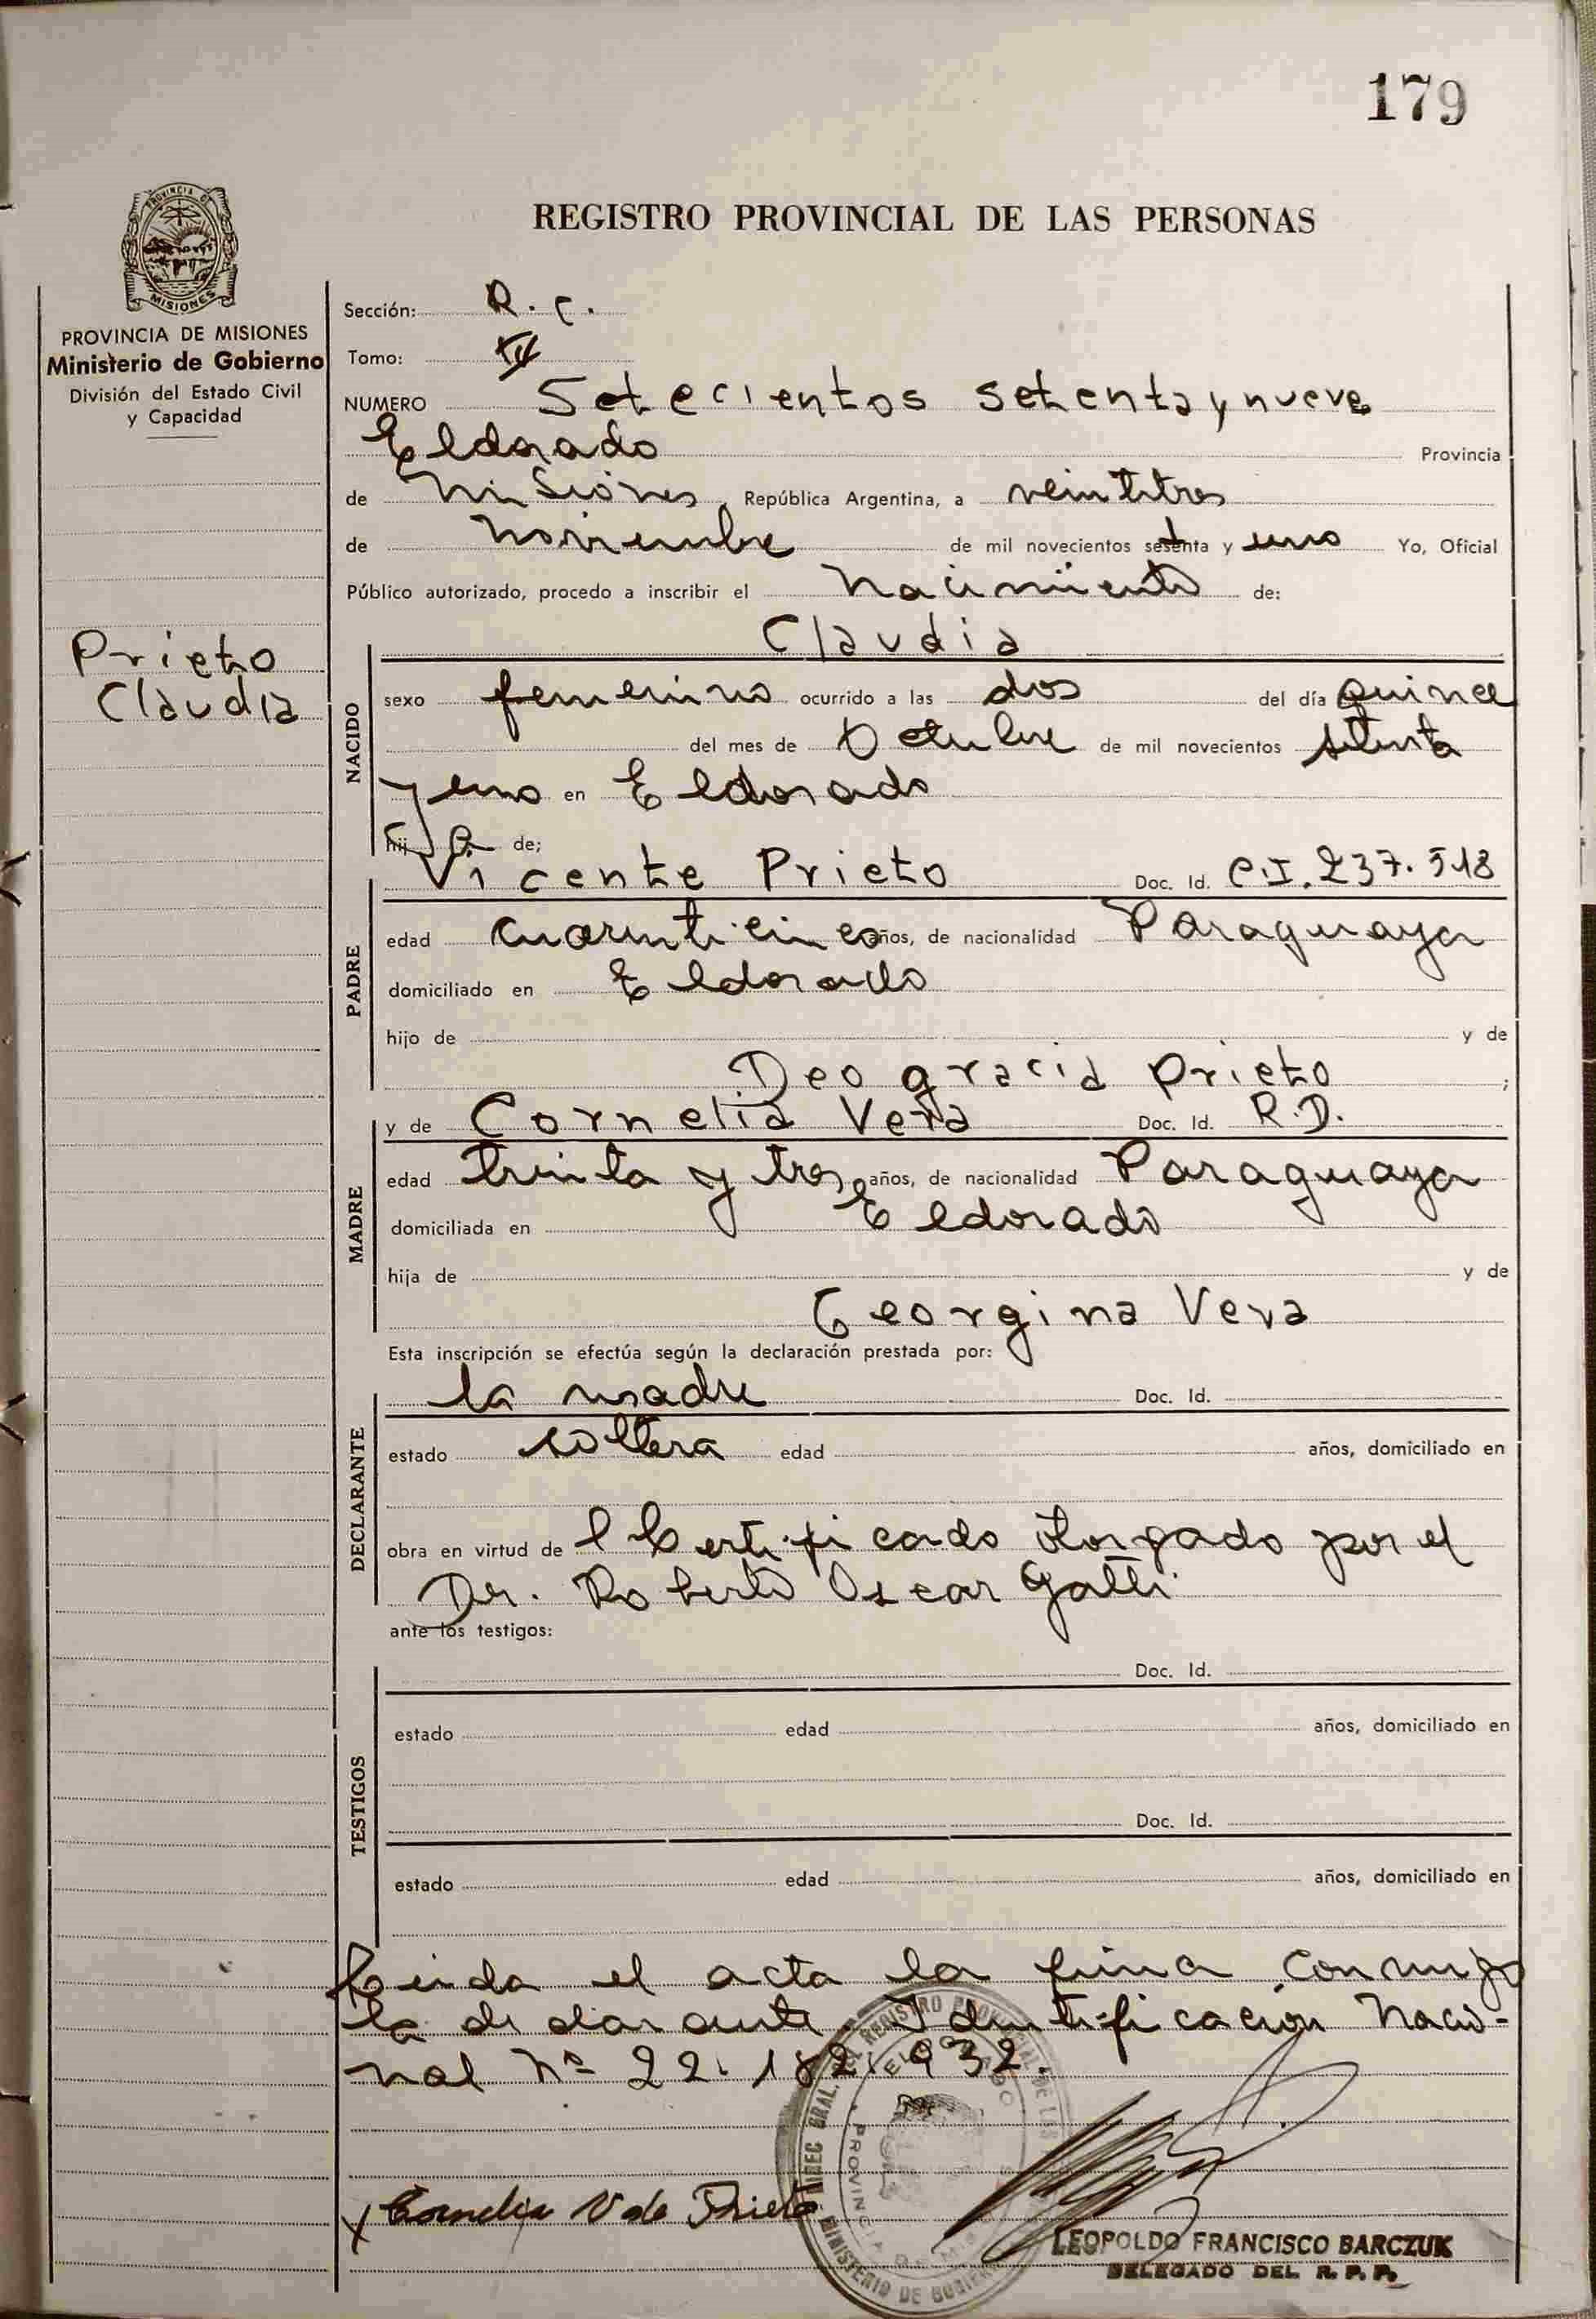 179
PROVINCIA DE
MISIONES
REGISTRO PROVINCIAL DE LAS PERSONAS
PROVINCIA DE MISIONES
Ministerio de Gobierno
División del Estado Civil
y Capacidad
Prieto
Claudia
Sección: R. C.
Tomo:
NUMERO Setecientos setenta y nueve
Eldorado Provincia
de Misiones, República Argentina, a veintitres
de noviembre de mil novecientos setenta y uno Yo, Oficial
Público autorizado, procedo a inscribir el nacimiento de:
NACIDO
Claudia
sexo femenino ocurrido a las dos del día quince
del mes de Octubre de mil novecientos setenta
y uno en Eldorado
hija de;
PADRE
Vicente Prieto Doc. Id. C.I. 237.518
edad cuarenticinco años, de nacionalidad Paraguaya
domiciliado en Eldorado
hijo de y de
Deogracia Prieto ;
MADRE
y de Cornelia Vera Doc. Id. R.D.
edad treinta y tres años, de nacionalidad Paraguaya
domiciliada en Eldorado
hija de y de
Georgina Vera
Esta inscripción se efectúa según la declaración prestada por:
DECLARANTE
la madre Doc. Id.
estado soltera edad años, domiciliado en
obra en virtud de l Certificado otorgado por el
Dr. Roberto Oscar Gatti
ante los testigos:
TESTIGOS
Doc. Id.
estado edad años, domiciliado en
Doc. Id.
estado edad años, domiciliado en
Leida el acta la firma conmigo
la declarante. Identificación Nacio-
nal Nº 22.182.932.
x Cornelia V de Prieto
LEOPOLDO FRANCISCO BARCZUK
DELEGADO DEL R. P. P.